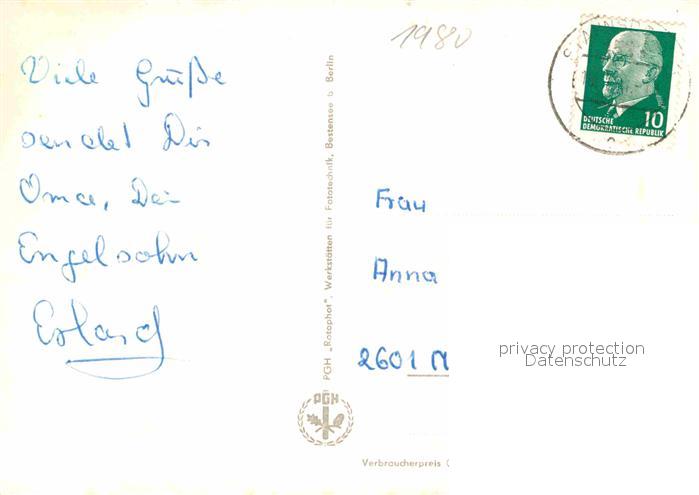 1980
10
DEUTSCHE
DEMOKRATISCHE REPUBLIK
Viele Grüße
sendet Dir
Oma, Dein
Engelsohn
PGH „Rotophot", Werkstätten für Fototechnik, Bestensee b. Berlin
PGH
Frau
Anna
2601 M
privacy protection
Datenschutz
Verbraucherpreis (